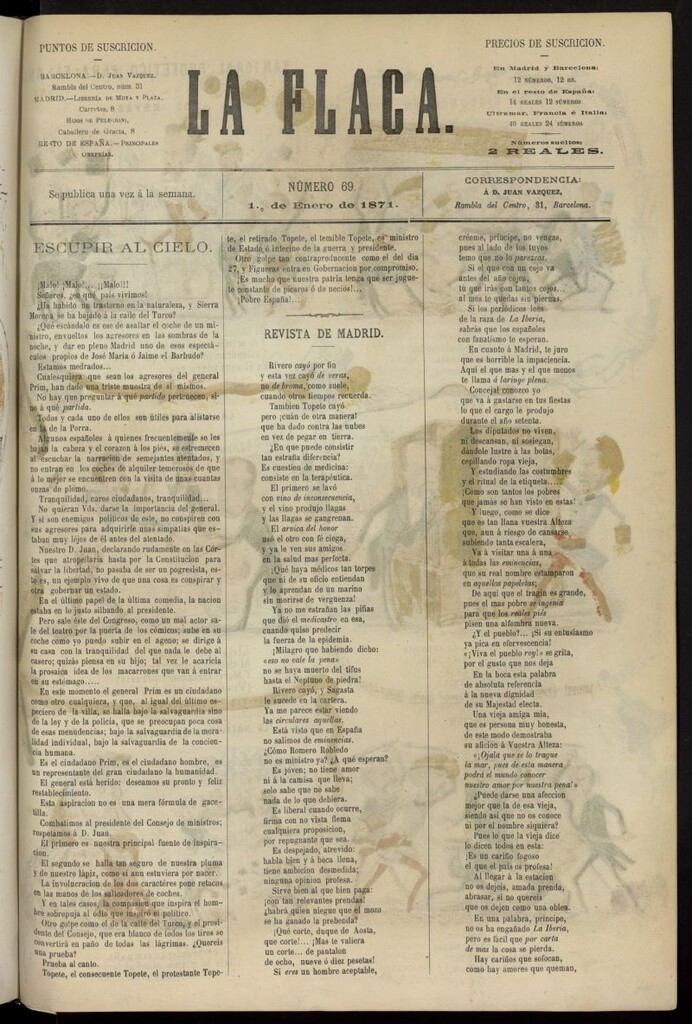 PUNTOS DE SUSCRICION.
BARCELONA.—D. JUAN VAZQUEZ,
Rambla del Centro, núm. 31
MADRID.—LIBRERÍA DE MOYA Y PLAZA,
Carretas, 8
HIJOS DE PELEGRINI,
Caballero de Gracia, 8
RESTO DE ESPAÑA.—PRINCIPALES
LIBRERÍAS.
LA FLACA.
PRECIOS DE SUSCRICION.
En Madrid y Barcelona:
12 NÚMEROS, 12 RS.
En el resto de España:
14 REALES 12 NÚMEROS
Ultramar, Francia é Italia:
40 REALES 24 NÚMEROS
Números sueltos:
2 REALES.
Se publica una vez á la semana.
NÚMERO 69.
1.º de Enero de 1871.
CORRESPONDENCIA:
Á D. JUAN VAZQUEZ,
Rambla del Centro, 31, Barcelona.
ESCUPIR AL CIELO.
¡Malo! ¡Malo!... ¡¡Malo!!!
Señores, ¿en qué país vivimos!
¿Ha habido un trastorno en la naturaleza, y Sierra
Morena se ha bajado á la calle del Turco?
¿Qué escándalo es ese de asaltar el coche de un mi-
nistro, envueltos los agresores en las sombras de la
noche, y dar en pleno Madrid uno de esos espectá-
culos propios de José María ó Jaime el Barbudo?
Estamos medrados...
Cualesquiera que sean los agresores del general
Prim, han dado una triste muestra de sí mismos.
No hay que preguntar á qué partido pertenecen, si-
no á qué partida.
Todos y cada uno de ellos son útiles para alistarse
en la de la Porra.
Algunos españoles á quienes frecuentemente se les
bajan la cabeza y el corazon á los piés, se estremecen
al escuchar la narracion de semejantes atentados, y
no entran en los coches de alquiler temerosos de que
á lo mejor se encuentren con la visita de unas cuantas
onzas de plomo.
Tranquilidad, caros ciudadanos, tranquilidad...
No quieran Vds. darse la importancia del general.
Y si son enemigos políticos de este, no conspiren con
sus agresores para adquirirle unas simpatías que es-
taban muy léjos de él antes del atentado.
Nuestro D. Juan, declarando rudamente en las Cór-
tes que atropellaria hasta por la Constitucion para
salvar la libertad, no pasaba de ser un progresista, es-
to es, un ejemplo vivo de que una cosa es conspirar y
otra gobernar un estado.
En el último papel de la última comedia, la nacion
estaba en lo justo silbando al presidente.
Pero sale éste del Congreso, como un mal actor sa-
le del teatro por la puerta de los cómicos; sube en su
coche como yo puedo subir en el ageno; se dirige á
su casa con la tranquilidad del que nada le debe al
casero; quizás piensa en su hijo; tal vez le acaricia
la prosaica idea de los macarrones que van á entrar
en su estómago.....
En este momento el general Prim es un ciudadano
como otro cualquiera, y que, al igual del último es-
peciero de la villa, se halla bajo la salvaguardia sino
de la ley y de la policía, que se preocupan poca cosa
de esas menudencias; bajo la salvaguardia de la mora-
lidad individual, bajo la salvaguardia de la concien-
cia humana.
Es el ciudadano Prim, es el ciudadano hombre, es
un representante del gran ciudadano la humanidad.
El general está herido: deseamos su pronto y feliz
restablecimiento.
Esta aspiracion no es una mera fórmula de gace-
tilla.
Combatimos al presidente del Consejo de ministros;
respetamos á D. Juan.
El primero es nuestra principal fuente de inspira-
cion.
El segundo se halla tan seguro de nuestra pluma
y de nuestro lápiz, como si aun estuviera por nacer.
La involucracion de los dos caractéres pone retacos
en las manos de los salteadores de coches.
Y en tales casos, la compasion que inspira el hom-
bre sobrepuja al odio que inspiró el político.
Otro golpe como el de la calle del Turco, y el presi-
dente del Consejo, que era blanco de todos los tiros se
convertirá en paño de todas las lágrimas. ¿Quereis
una prueba?
Prueba al canto.
Topete, el consecuente Topete, el protestante Tope-
te, el retirado Topete, el temible Topete, es ministro
de Estado é interino de la guerra y presidente.
Otro golpe tan contraproducente como el del dia
27, y Figueras entra en Gobernacion por compromiso.
¡Es mucho que nuestra patria tenga que ser jugue-
te constante de pícaros ó de necios!...
¡Pobre España!...
REVISTA DE MADRID.
Rivero cayó por fin
y esta vez cayó de veras,
no de broma, como suele,
cuando otros tiempos recuerda.
Tambien Topete cayó
pero ¡cuán de otra manera!
que ha dado contra las nubes
en vez de pegar en tierra.
¿En que puede consistir
tan estraña diferencia?
Es cuestion de medicina:
consiste en la terapéutica.
El primero se lavó
con vino de inconsecuencia,
y el vino produjo llagas
y las llagas se gangrenan.
El arnica del honor
usó el otro con fé ciega,
y ya le ven sus amigos
en la salud mas perfecta.
¡Que haya médicos tan torpes
que ni de su oficio entiendan
y lo aprendan de un marino
sin morirse de vergüenza!
Ya no me estrañan las piñas
que dió el medicastro en esa,
cuando quiso predecir
la fuerza de la epidemia.
¡Milagro que habiendo dicho:
«eso no vale la pena»
no se haya muerto del tifus
hasta el Neptuno de piedra!
Rivero cayó, y Sagasta
le sucede en la cartera.
Ya me parece estar viendo
las circulares aquellas.
Está visto que en España
no salimos de eminencias.
¿Cómo Romero Robledo
no es ministro ya? ¿A qué esperan?
Es jóven; no tiene amor
ni á la camisa que lleva;
solo sabe que no sabe
nada de lo que debiera.
Es liberal cuando ocurre,
firma con no vista flema
cualquiera proposicion,
por repugnante que sea.
Es despejado, atrevido:
habla bien y á boca llena,
tiene ambicion desmedida;
ninguna opinion profesa.
Sirve bien al que bien paga:
¡con tan relevantes prendas!
¿habrá quien niegue que el mozo
se ha ganado la prebenda?
¡Qué corte, duque de Aosta,
que corte!... ¡Mas te valiera
un corte... de pantalon
de ocho, nueve ó diez pesetas!
Si eres un hombre aceptable,
créeme, príncipe, no vengas,
pues al lado de los tuyos
temo que no lo parezcas.
Si el que con un cojo va
antes del año cojea,
tú que irás con tantos cojos...
al mes te quedas sin piernas.
Si los periódicos lees
de la raza de La Iberia,
sabrás que los españoles
con fanatismo te esperan.
En cuanto á Madrid, te juro
que es horrible la impaciencia.
Aquí el que mas y el que menos
te llama á laringe plena.
Concejal conozco yo
que va á gastarse en tus fiestas
lo que el cargo le produjo
durante el año setenta.
Los diputados no viven,
ni descansan, ni sosiegan,
dándole lustre á las botas,
cepillando ropa vieja,
Y estudiando las costumbres
y el ritual de la etiqueta....
¡Como son tantos los pobres
que jamás se han visto en estas!
Y luego, como se dice
que es tan llana vuestra Alteza
que, aun á riesgo de cansarse
subiendo tanta escalera,
Va á visitar una á una
á todas las eminencias,
que su real nombre estamparon
en aquellas papeletas;
De aquí que el tragin es grande,
pues el mas pobre se ingenia
para que los reales piés
pisen una alfombra nueva.
¿Y el pueblo?... ¡Si su entusiasmo
ya pica en efervescencia!
«¡Viva el pueblo rey!» se grita,
por el gusto que nos deja
En la boca esta palabra
de absoluta referencia
á la nueva dignidad
de su Majestad electa.
Una vieja amiga mia,
que es persona muy honesta,
de este modo demostraba
su aficion á Vuestra Alteza:
«¡Ojalá que se lo trague
la mar, pues de esta manera
podrá el mundo conocer
nuestro amor por nuestra pena!»
¿Puede darse una afeccion
mejor que la de esa vieja,
siendo así que no os conoce
ni por el nombre siquiera?
Pues lo que la vieja dice
lo dicen todos en esta:
¡Es un cariño fogoso
el que el país os profesa!
Al llegar á la estacion
no os dejeis, amada prenda,
abrasar, si no quereis
que os dejen como una oblea.
En una palabra, príncipe,
no os ha engañado La Iberia,
pero es fácil que por carta
de mas la cosa se pierda.
Hay cariños que sofocan,
como hay amores que queman,